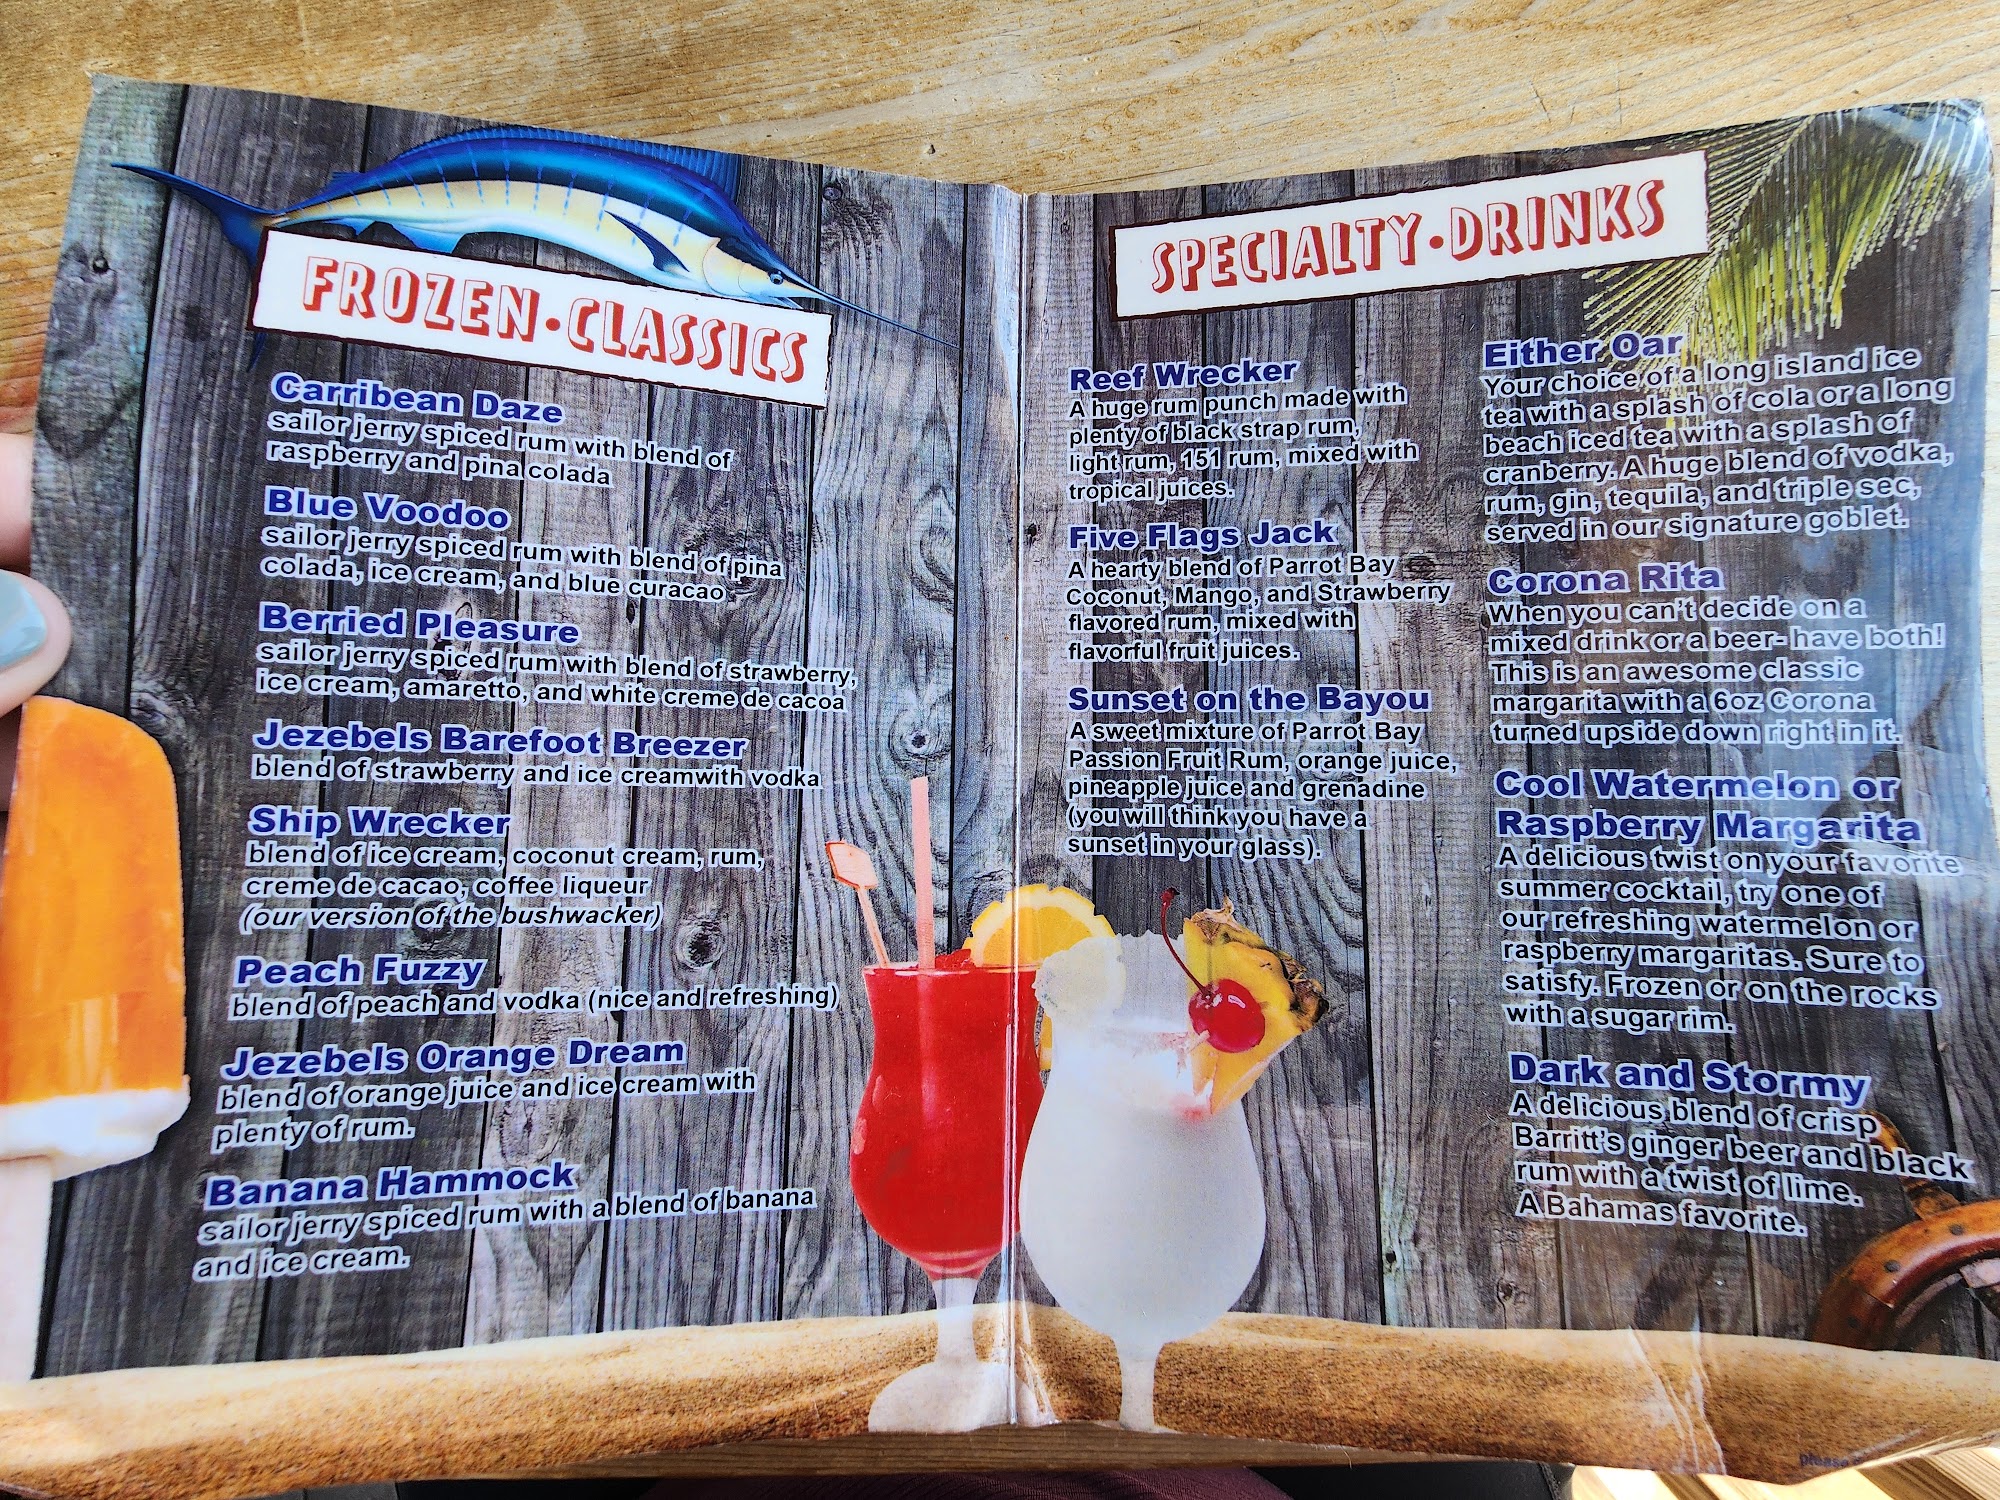 FROZEN•CLASSICS
Carribean Daze
sailor jerry spiced rum with blend of
raspberry and pina colada
Blue Voodoo
sailor jerry spiced rum with blend of pina
colada, ice cream, and blue curacao
Berried Pleasure
sailor jerry spiced rum with blend of strawberry,
ice cream, amaretto, and white creme de cacoa
Jezebels Barefoot Breezer
blend of strawberry and ice creamwith vodka
Ship Wrecker
blend of ice cream, coconut cream, rum,
creme de cacao, coffee liqueur
(our version of the bushwacker)
Peach Fuzzy
blend of peach and vodka (nice and refreshing)
Jezebels Orange Dream
blend of orange juice and ice cream with
plenty of rum.
Banana Hammock
sailor jerry spiced rum with a blend of banana
and ice cream.
SPECIALTY•DRINKS
Reef Wrecker
A huge rum punch made with
plenty of black strap rum,
light rum, 151 rum, mixed with
tropical juices.
Five Flags Jack
A hearty blend of Parrot Bay
Coconut, Mango, and Strawberry
flavored rum, mixed with
flavorful fruit juices.
Sunset on the Bayou
A sweet mixture of Parrot Bay
Passion Fruit Rum, orange juice,
pineapple juice and grenadine
(you will think you have a
sunset in your glass).
Either Oar
Your choice of a long island ice
tea with a splash of cola or a long
beach iced tea with a splash of
cranberry. A huge blend of vodka,
rum, gin, tequila, and triple sec,
served in our signature goblet.
Corona Rita
When you can't decide on a
mixed drink or a beer- have both!
This is an awesome classic
margarita with a 6oz Corona
turned upside down right in it.
Cool Watermelon or
Raspberry Margarita
A delicious twist on your favorite
summer cocktail, try one of
our refreshing watermelon or
raspberry margaritas. Sure to
satisfy. Frozen or on the rocks
with a sugar rim.
Dark and Stormy
A delicious blend of crisp
Barritt's ginger beer and black
rum with a twist of lime.
A Bahamas favorite.
please